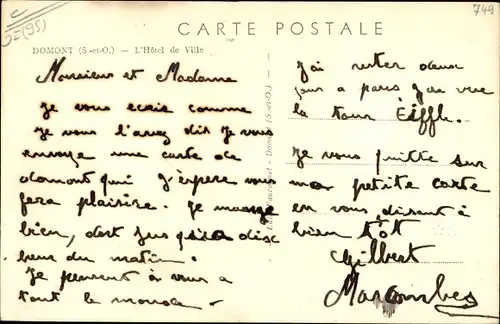 CARTE POSTALE
749
DOMONT (S.-et-O.) — L'Hôtel de Ville
Monsieur et Madame
Je vous ecris comme
Je vous l'avez dis Je vous
envoye une carte de
domont qui J'espere vous
fera plaisire. Je mange
bien, dort jusqu'a dix
heure du matin.
Je penent à vous a
tout le monde.
J'ai rester deux
jour a paris J'ai vue
la tour Eiffle.
Je vous quitte sur
ma petite carte
en vous disant à
bien tôt
Gilbert